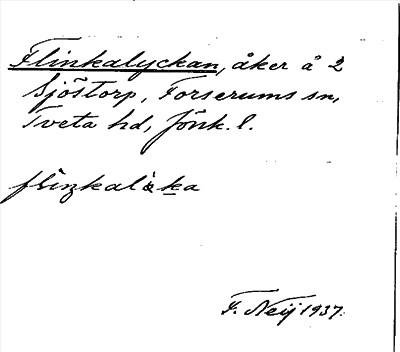 Flinkalyckan, åker å 2
Sjöstorp, Forserums sn,
Tveta hd, Jönk. l.
F. Neij 1937.